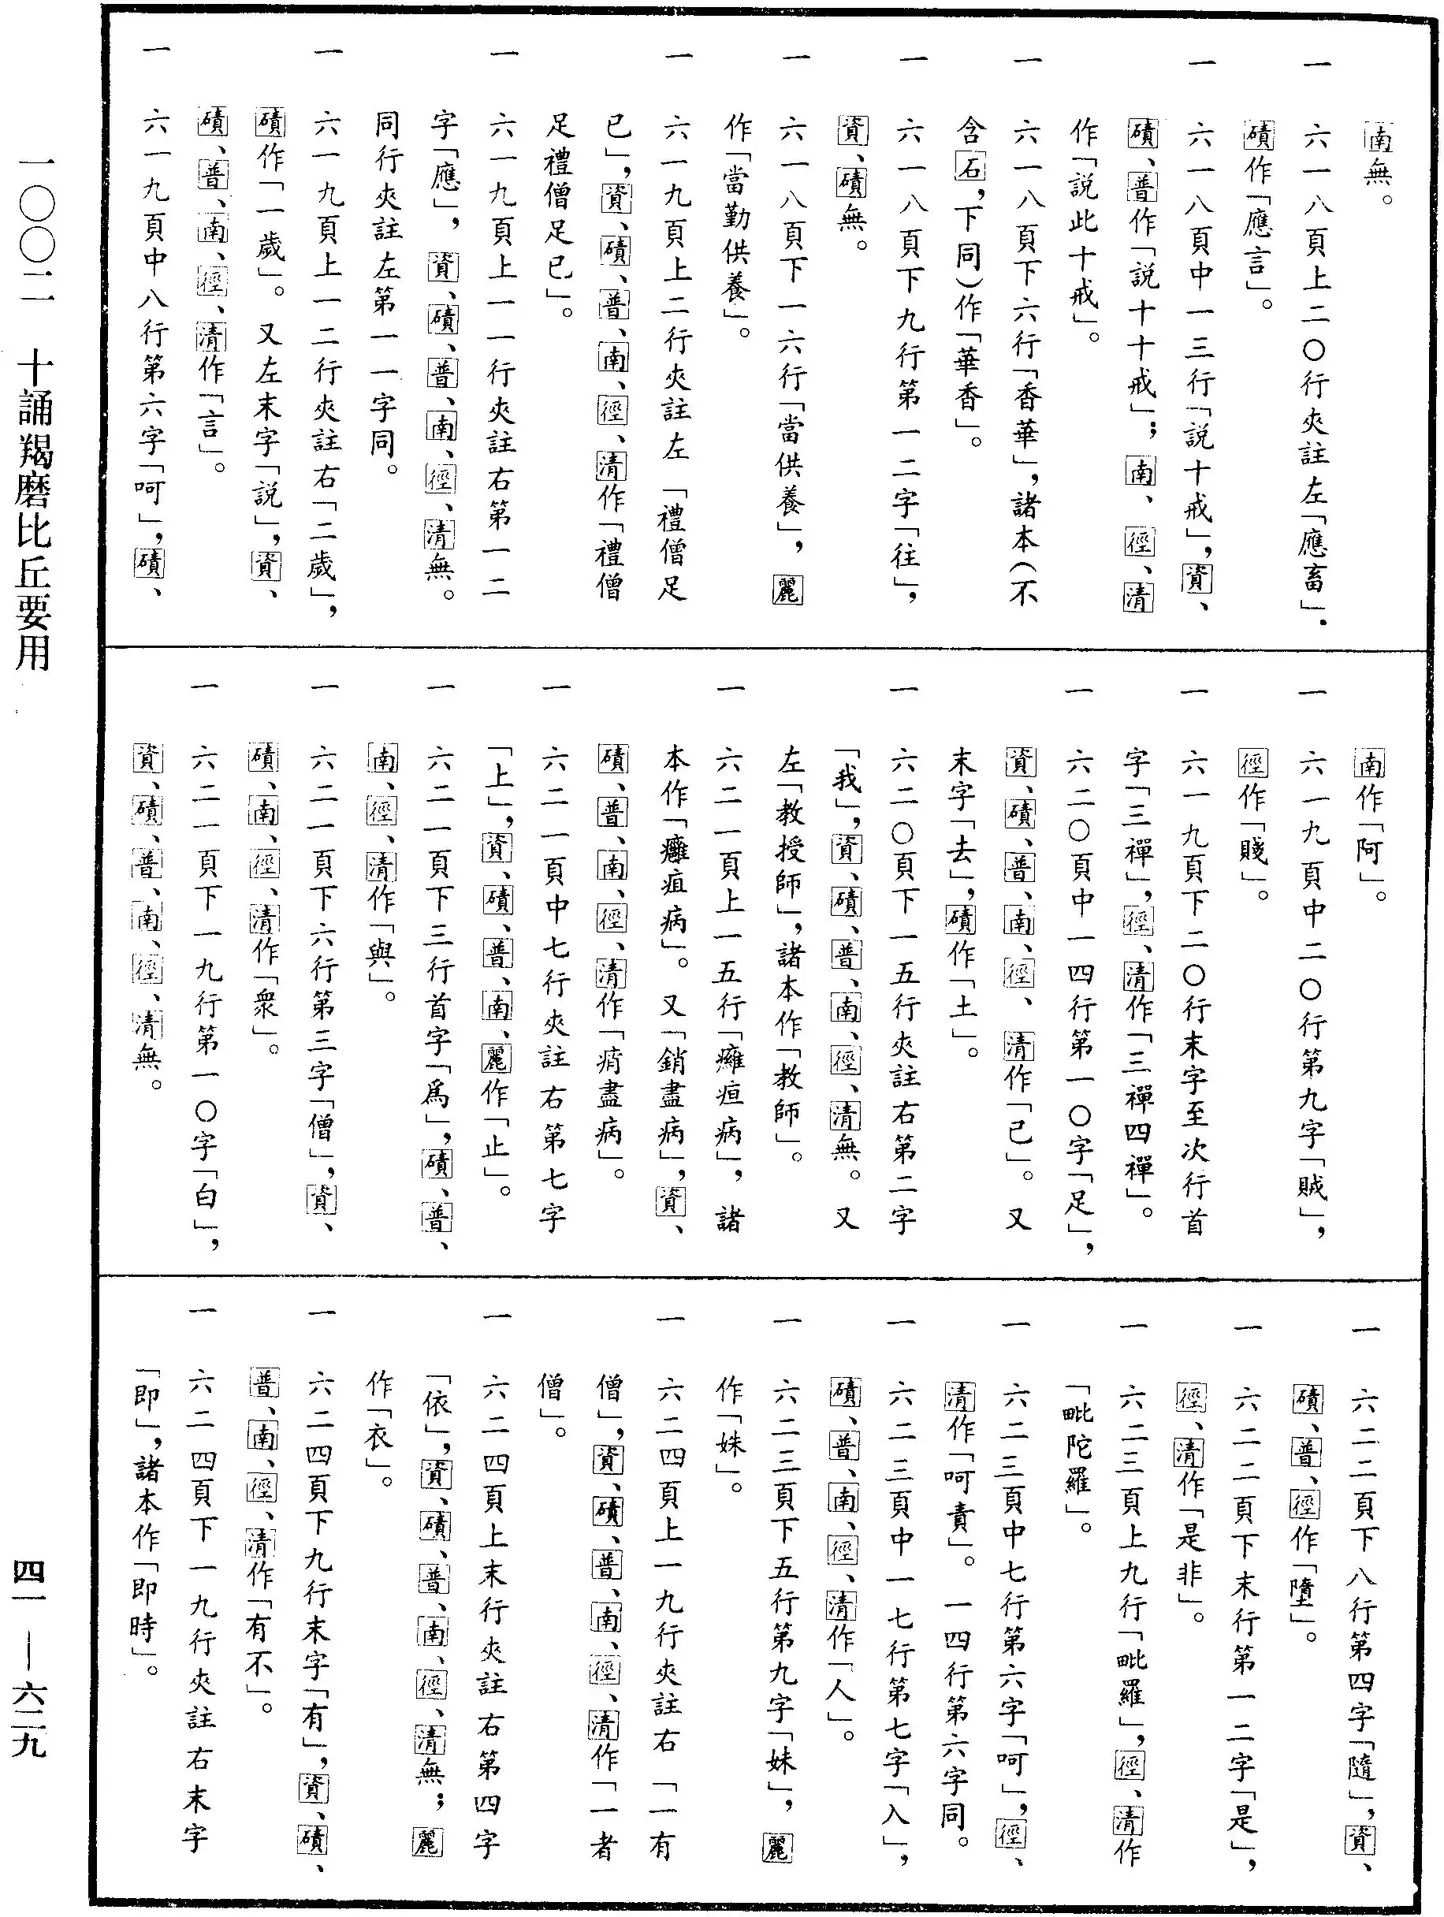 南無。
一 六一八頁上二〇行夾註左「應畜」．
磧作「應言」。
一 六一八頁中一三行「説十戒」，資、
磧、普作「説十十戒」；南、徑、清
作「説此十戒」。
一 六一八頁下六行「香華」，諸本（不
含石，下同）作「華香」。
一 六一八頁下九行第一二字「往」，
資、磧無。
一 六一八頁下一六行「當供養」，麗
作「當勤供養」。
一 六一九頁上二行夾註左「禮僧足
已」，資、磧、普、南、徑、清作「禮僧
足禮僧足已」。
一 六一九頁上一一行夾註右第一二
字「應」，資、磧、普、南、徑、清無。
同行夾註左第一一字同。
一 六一九頁上一二行夾註右「二歲」，
磧作「一歲」。又左末字「説」，資、
磧、普、南、徑、清作「言」。
一 六一九頁中八行第六字「呵」，磧、
南作「阿」。
一 六一九頁中二〇行第九字「賊」，
徑作「賤」。
一 六一九頁下二〇行末字至次行首
字「三禪」，徑、清作「三禪四禪」。
一 六二〇頁中一四行第一〇字「足」，
資、磧、普、南、徑、清作「已」。又
末字「去」，磧作「土」。
一 六二〇頁下一五行夾註右第二字
「我」，資、磧、普、南、徑、清無。又
左「教授師」，諸本作「教師」。
一 六二一頁上一五行「癰疸病」，諸
本作「癰疽病」。又「銷盡病」，資、
磧、普、南、徑、清作「痟盡病」。
一 六二一頁中七行夾註右第七字
「上」，資、磧、普、南、麗作「止」。
一 六二一頁下三行首字「爲」，磧、普、
南、徑、清作「與」。
一 六二一頁下六行第三字「僧」，資、
磧、南、徑、清作「衆」。
一 六二一頁下一九行第一〇字「白」，
資、磧、普、南、徑、清無。
一 六二二頁下八行第四字「隨」，資、
磧、普、徑作「墮」。
一 六二二頁下末行第一二字「是」，
徑、清作「是非」。
一 六二三頁上九行「毗羅」，徑、清作
「毗陀羅」。
一 六二三頁中七行第六字「呵」，徑、
清作「呵責」。一四行第六字同。
一 六二三頁中一七行第七字「入」，
磧、普、南、徑、清作「人」。
一 六二三頁下五行第九字「妹」，麗
作「姝」。
一 六二四頁上一九行夾註右「一有
僧」，資、磧、普、南、徑、清作「一者
僧」。
一 六二四頁上末行夾註右第四字
「依」，資、磧、普、南、徑、清無；麗
作「衣」。
一 六二四頁下九行末字「有」，資、磧、
普、南、徑、清作「有不」。
一 六二四頁下一九行夾註右末字
「即」，諸本作「即時」。
一〇〇二 十誦羯磨比丘要用
四一—六二九